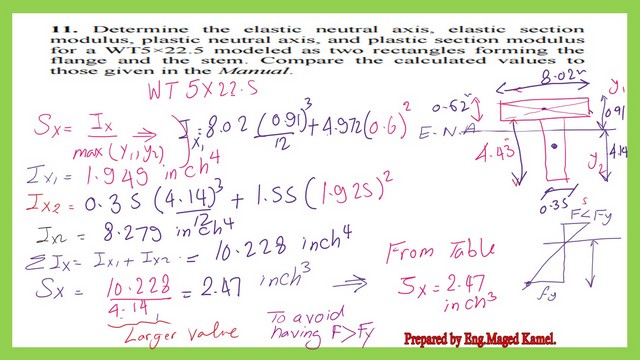 11. Determine the elastic neutral axis, elastic section
modulus, plastic neutral axis, and plastic section modulus
for a WT5×22.5 modeled as two rectangles forming the
flange and the stem. Compare the calculated values to
those given in the Manual.
WT 5X22.5
Sx = Ix / max(y1,y2)
Ix1 = 8.02 (0.91)^3/12 + 4.972(0.6)^2
Ix1 = 1.949 inch^4
Ix2 = 0.35 (4.14)^3/12 + 1.55 (1.925)^2
Ix2 = 8.279 inch^4
ΣIx = Ix1 + Ix2 = 10.228 inch^4
Sx = 10.228/4.14 = 2.47 inch^3
Larger value
To avoid
having F>Fy
⇒
From Table
Sx = 2.47
inch^3
8.02"
0.62"
y1
0.91
E.N.A
4.43
y2
4.14
0.35"
F<Fy
fy
Prepared by Eng.Maged Kamel.